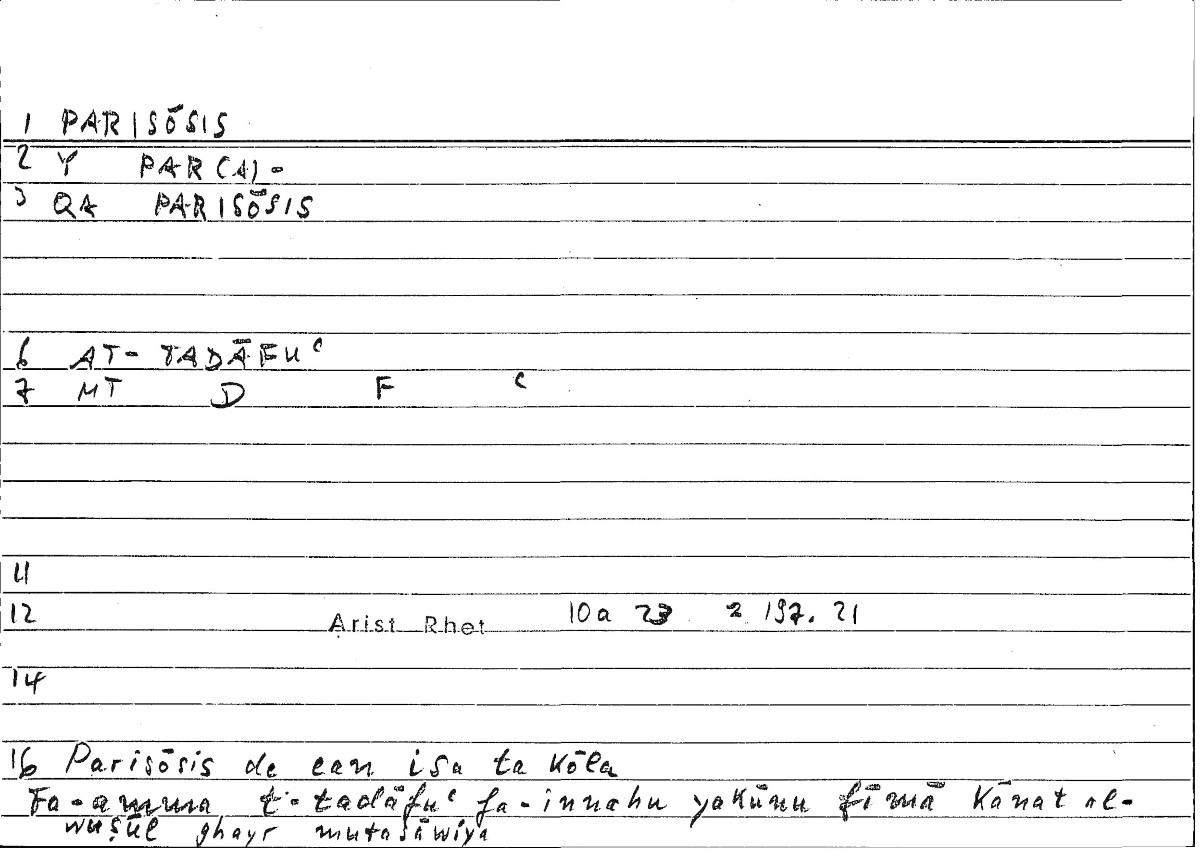 1 PARISŌSIS
2 Y PAR(A)-
3 QA PARISŌSIS
6 AT-TADĀFUᶜ
7 MT D F ᶜ
11
12 Arist Rhet 10a 23 = 197.21
14
16 Parisōsis de ean isa ta kōla
Fa-amma t-tadāfuᶜ fa-innahu yakūnu fīmā kānat al-
wuṣūl ghayr mutasāwiya